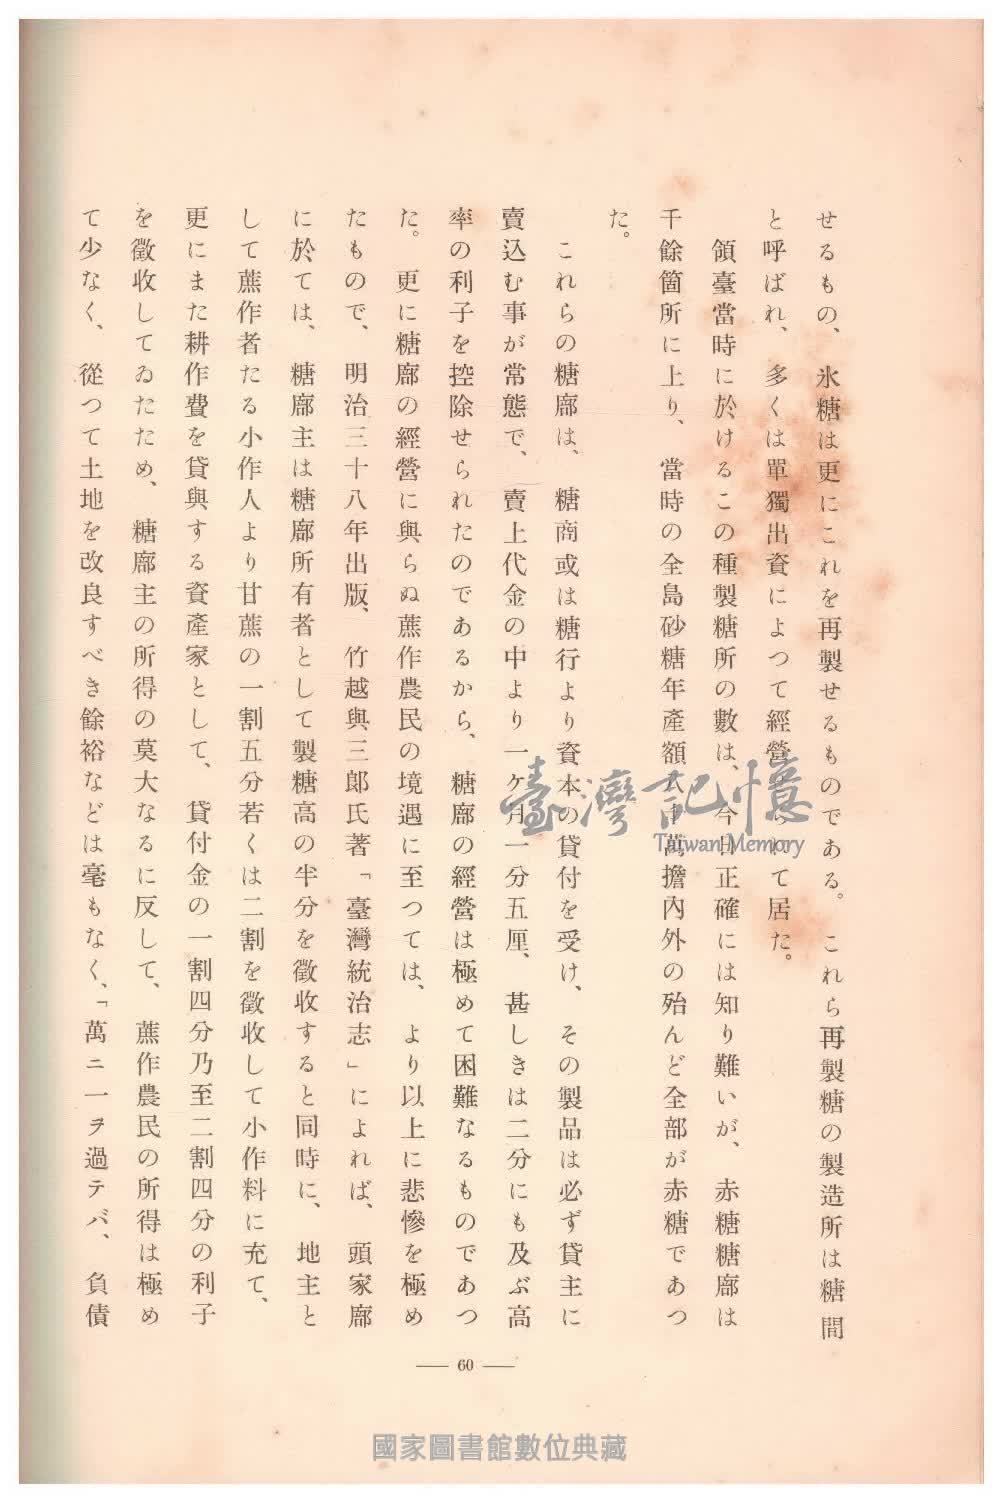 せるもの、氷糖は更にこれを再製せるものである。これら再製糖の製造所は糖間
と呼ばれ、多くは單獨出資によつて經營られて居た。
領臺當時に於けるこの種製糖所の數は、今日正確には知り難いが、赤糖糖廍は
千餘箇所に上り、當時の全島砂糖年産額萬擔內外の殆んど全部が赤糖であつ
た。
これらの糖廍は、糖商或は糖行より資本の貸付を受け、その製品は必ず貸主に
賣込む事が常態で、賣上代金の中より一ケ月一分五厘、甚しきは二分にも及ぶ高
率の利子を控除せられたのであるから、糖廍の經營は極めて困難なるものであつ
た。更に糖廍の經營に與らぬ蔗作農民の境遇に至つては、より以上に悲慘を極め
たもので、明治三十八年出版、竹越與三郎氏著「臺灣統治志」によれば、頭家廍
に於ては、糖廍主は糖廍所有者として製糖高の半分を徵收すると同時に、地主と
して蔗作者たる小作人より甘蔗の一割五分若くは二割を徵收して小作料に充て、
更にまた耕作費を貸與する資産家として、貸付金の一割四分乃至二割四分の利子
を徵收してゐたため、糖廍主の所得の莫大なるに反して、蔗作農民の所得は極め
て少なく、從つて土地を改良すべき餘裕などは毫もなく、「萬ニ一ヲ過テバ、負債
— 60 —
臺灣記憶
Taiwan Memory
國家圖書館數位典藏